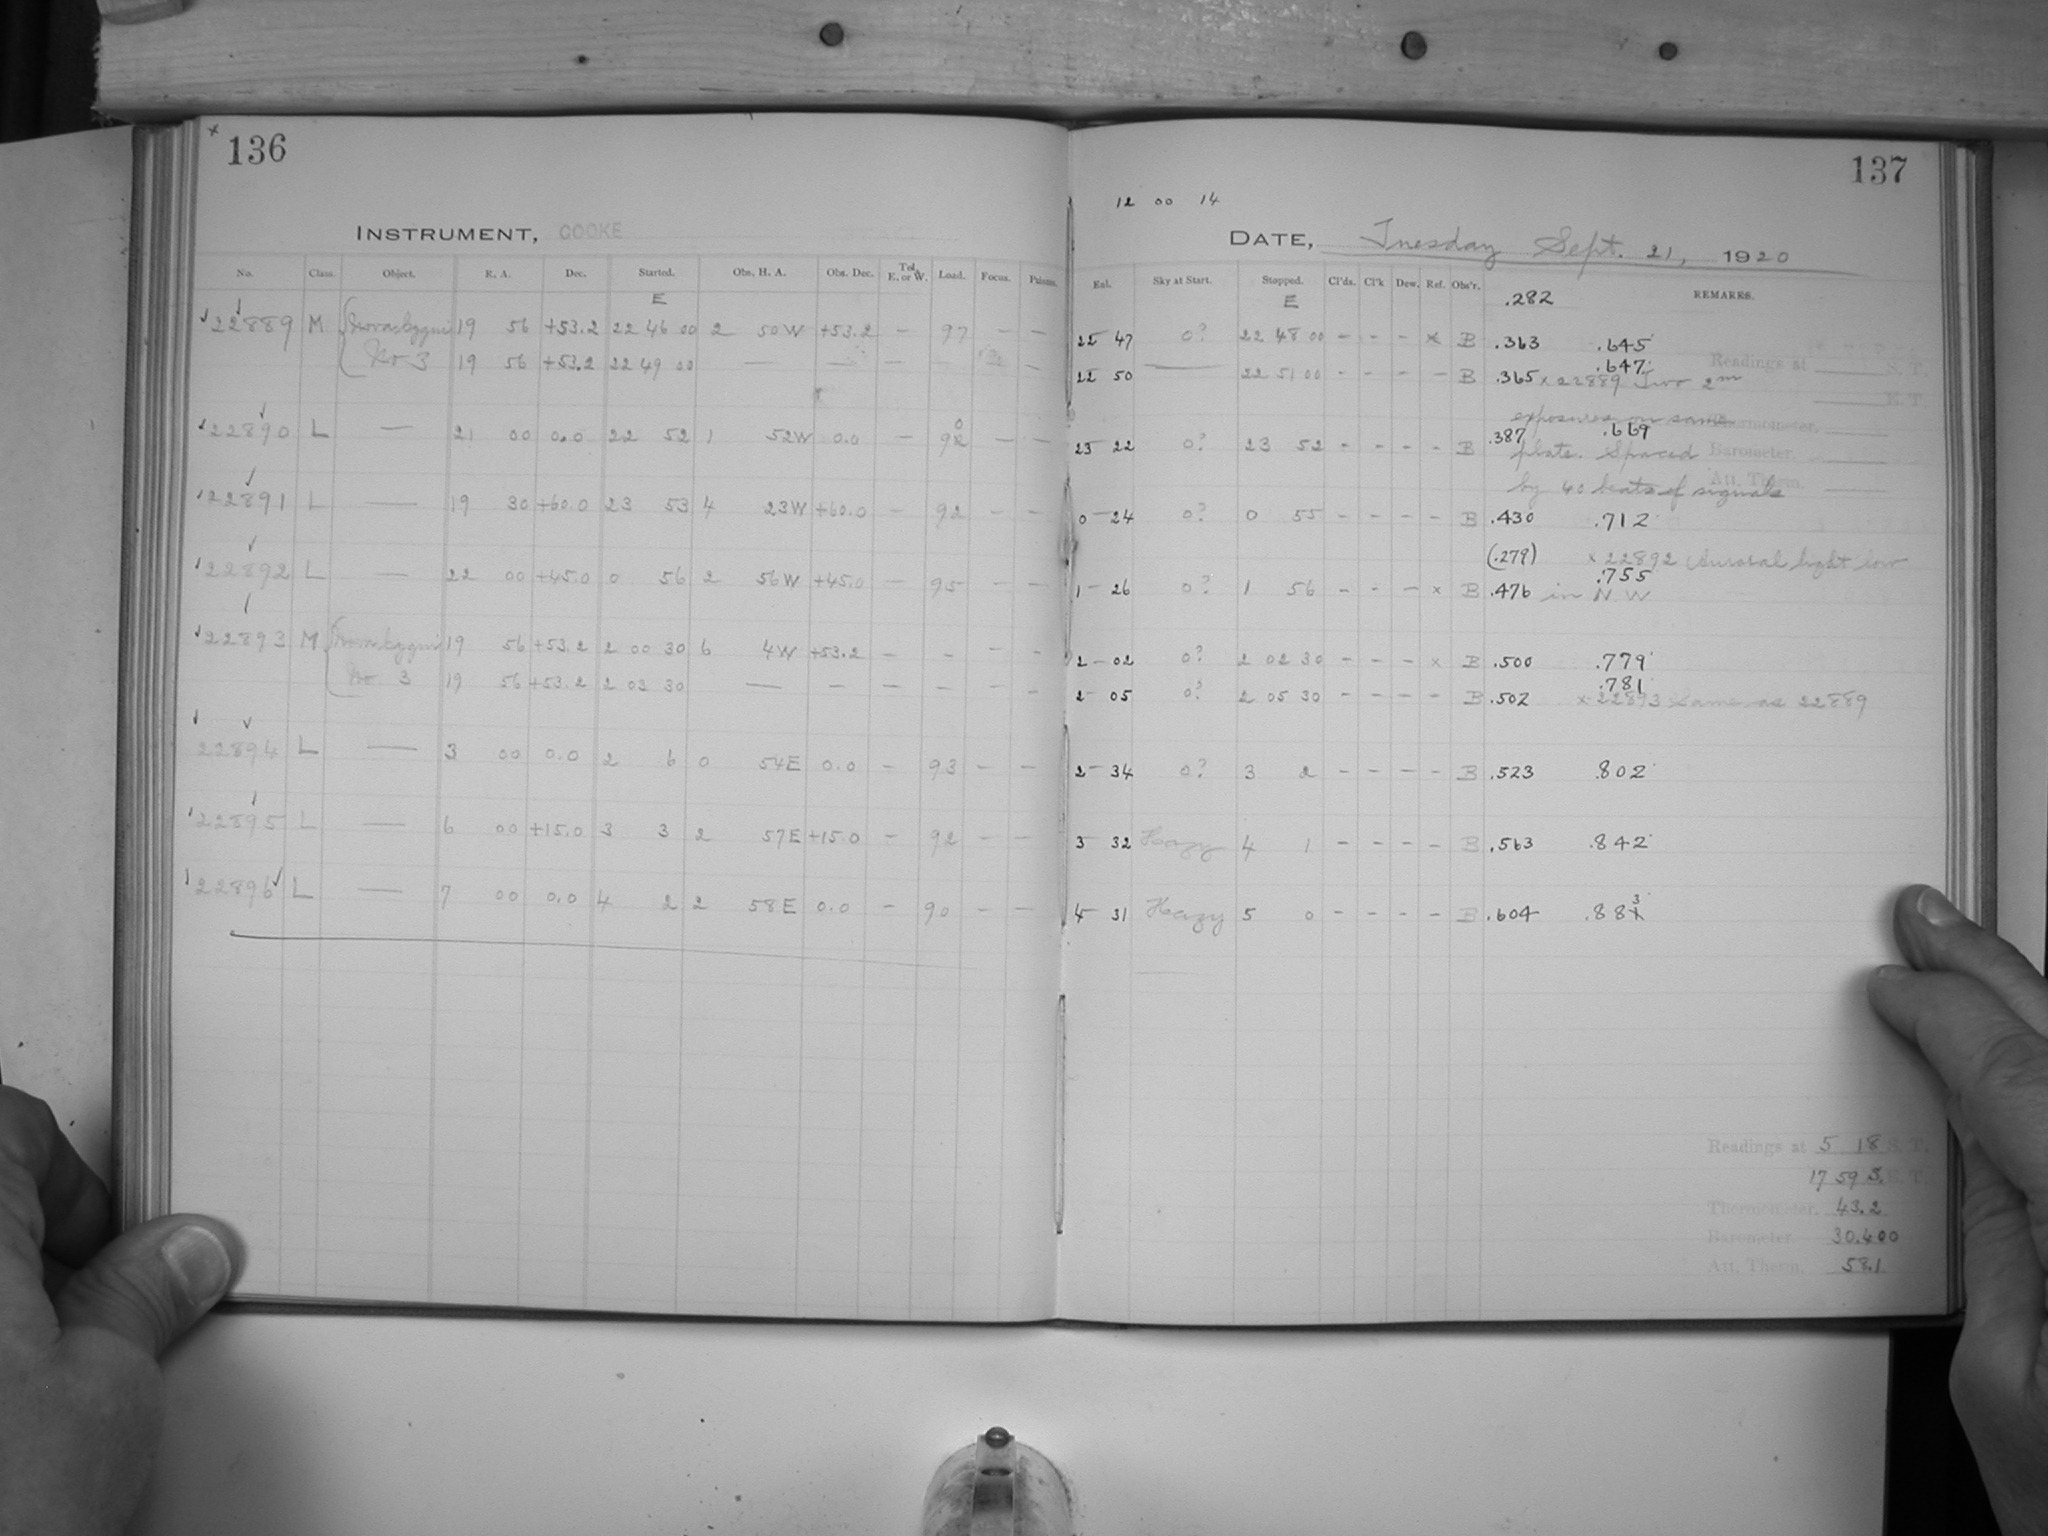 136
INSTRUMENT, COOKE
No. Class. Object. R. A. Dec. Started. Obs. H. A. Obs. Dec. Tel. E. or W. Load. Focus.
E
22889 M 19 56 +53.2 22 46 00 2 50W +53.2 — 97 — —
No 3 19 56 +53.2 22 49 00 — — — —
22890 L — 21 00 0.0 22 52 1 52W 0.0 — — —
22891 L — 19 30 +60.0 23 53 4 23W +60.0 — 92 — —
22892 L — 22 00 +45.0 0 56 2 56W +45.0 — 95 — —
22893 M 19 56 +53.2 2 00 30 6 4W +53.2 — — — —
No. 3 19 56 +53.2 2 03 30 — — — — — —
22894 L — 3 00 0.0 2 6 0 54E 0.0 — 93 — —
22895 L — 6 00 +15.0 3 3 2 57E +15.0 — 92 — —
22896 L — 7 00 0.0 4 2 2 58E 0.0 — 90 — —
137
12 00 14
DATE, Tuesday Sept. 21, 1920
Sky at Start. Stopped. Cl'ds. Cl'k Dew. Ref. Obs'r. REMARKS.
E .282
22 47 0? 22 48 00 - - - x B .363 .645
Readings at S. T.
.647
22 50 — 22 51 00 - - - - B .365 x 22889 Two 2m
E. T.
exposures on same
Thermometer.
23 22 0? 23 52 - - - - B .387 .669
plate. Spaced
Barometer.
Att. Therm.
by 40 beats of signals
0 24 0? 0 55 - - - - B .430 .712
(.279) x 22892 Auroral light low
.755
1 26 0? 1 56 - - - x B .476 in N W
2 02 0? 2 02 30 - - - x B .500 .779
.781
2 05 0? 2 05 30 - - - - B .502 x 22893 Same as 22889
2 34 0? 3 2 - - - - B .523 .802
3 32 Hazy 4 1 - - - - B .563 .842
4 31 Hazy 5 0 - - - - B .604 .883
Readings at 5 18 S. T.
17 59 S. E. T.
Thermometer. 43.2
Barometer. 30.400
Att. Therm. 58.1